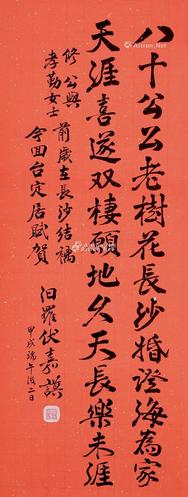 八十公公老樹花長沙婚證海為家
天涯喜遂双棲願地久天長樂未涯
修公與
孝勤女士 前歲在長沙結褵
今回台定居賦賀
汨羅伏嘉謨
甲戌端午後二日